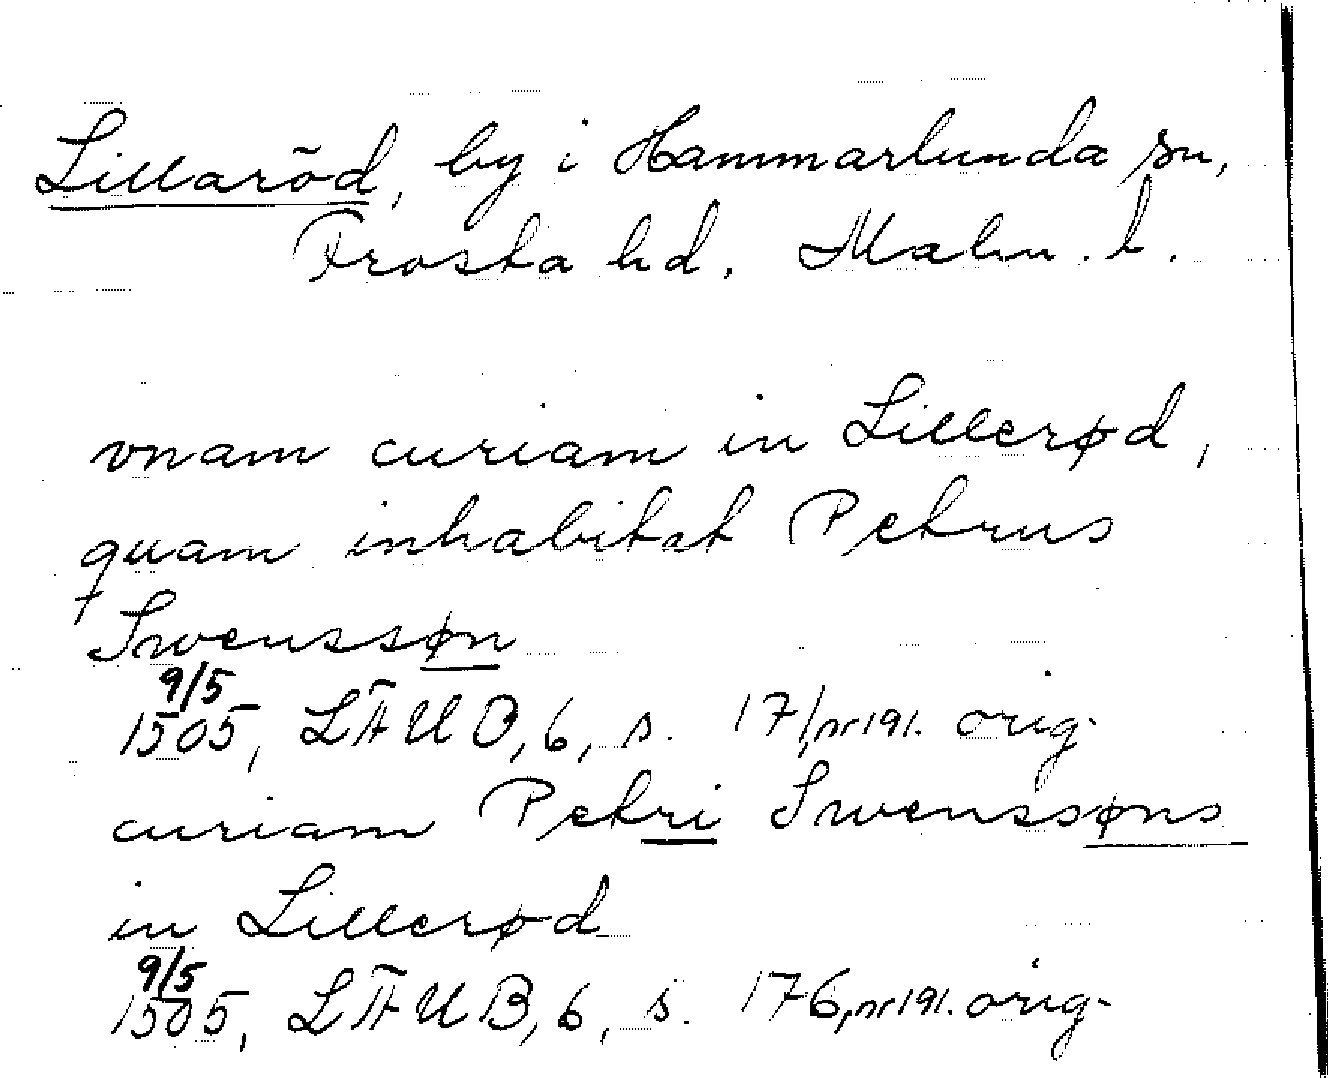 Lillaröd, by i Hammarlunda sn,
Frosta hd. Malm. l.
vnam curiam in Lillerød,
quam inhabitat Petrus
Swenssøn
9/5
1505, LÄUB, 6, s. 171, nr 191. orig.
curiam Petri Swenssøns
in Lillerød
9/5
1505, LÄUB, 6, s. 176, nr 191. orig.